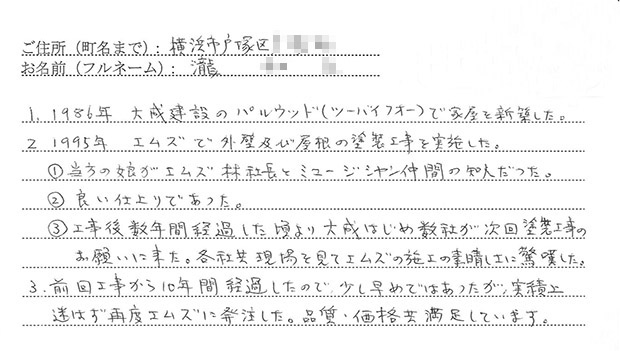 ご住所（町名まで）：横浜市戸塚区
お名前（フルネーム）：瀧
1. 1986年 大成建設のパルウッド(ツーバイフォー)で家屋を新築した。
2 1995年 エムズで外壁及び屋根の塗装工事を実施した。
①当方の娘がエムズ林社長とミュージシャン仲間の知人だった。
② 良い仕上りであった。
③工事後数年間経過した頃より大成はじめ数社が次回塗装工事の
お願いに来た。各社共現場を見てエムズの施工の素晴しさに驚嘆した。
3. 前回工事から10年間経過したので、少し早めではあったが、実績上
迷はず再度エムズに発注した。品質・価格共満足しています。